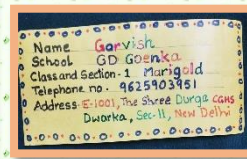 Name Garvish
School GD Goenka
Class and Section - 1 Marigold
Telephone no. 9625903951
Address - E-1001, The Shree Durga CGHS
Dwarka, Sec-11, New Delhi